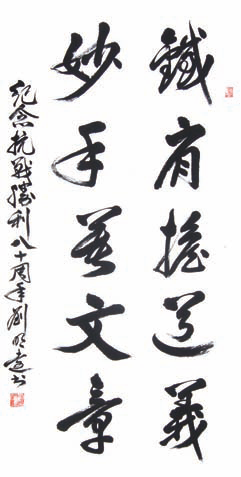 鐵肩擔道義
妙手著文章
紀念抗戰勝利八十周年劉明遠书